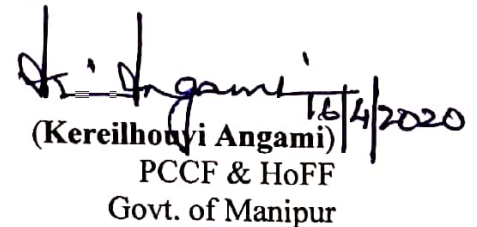 K. Angami
16/4/2020
(Kereilhouvi Angami)
PCCF & HoFF
Govt. of Manipur